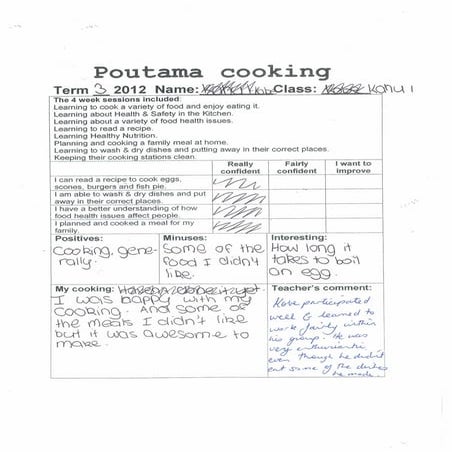 Poutama cooking
Term 3 2012 Name: Kobe Class: Konui 1
The 4 week sessions included:
Learning to cook a variety of food and enjoy eating it.
Learning about Health & Safety in the Kitchen.
Learning about a variety of food health issues.
Learning to read a recipe.
Learning Healthy Nutrition.
Planning and cooking a family meal at home.
Learning to wash & dry dishes and putting away in their correct places.
Keeping their cooking stations clean.
Really confident
Fairly confident
I want to improve
I can read a recipe to cook eggs,
scones, burgers and fish pie.
I am able to wash & dry dishes and put
away in their correct places.
I have a better understanding of how
food health issues affect people.
I planned and cooked a meal for my
family.
Positives:
Cooking, gene-
rally.
Minuses:
Some of the
food I didn't
like.
Interesting:
How long it
takes to boil
an egg.
My cooking:
I was happy with my
cooking. And some of
the meals I didn't like
but it was awesome to
make.
Teacher's comment:
Kobe participated
well & learned to
work fairly within
his group. He was
very enthusiastic
even though he didn't
eat some of the dishes
he made.